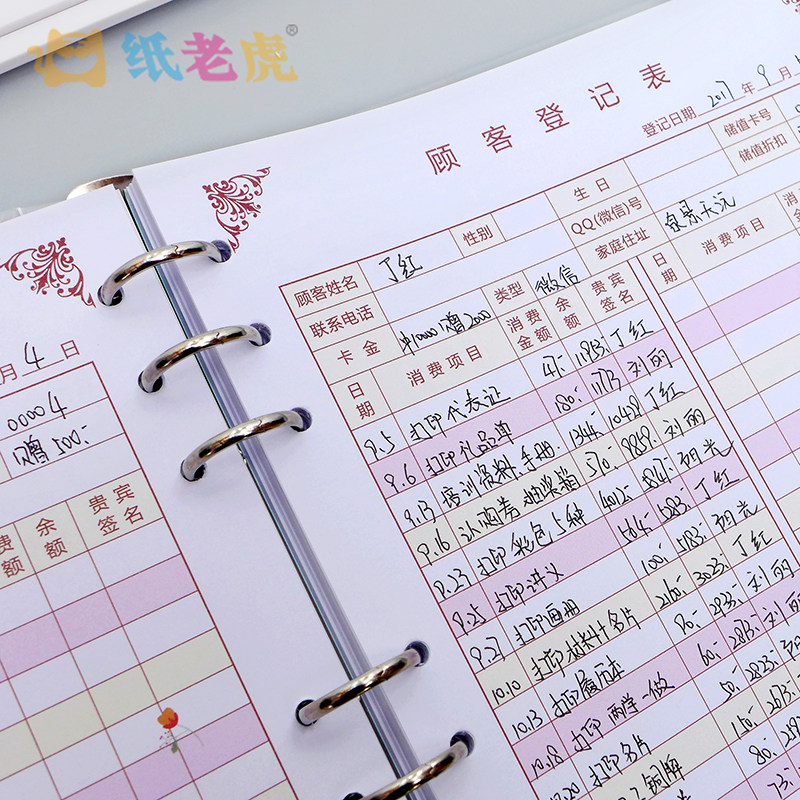 纸老虎®
顾客登记表
登记日期 2017 年 9 月
储值卡号
储值折扣
顾客姓名 丁红 性别 生日
联系电话 类型 微信 QQ(微信)号
卡金 冲10000赠2000 家庭住址
日期 消费项目 消费金额 余额 贵宾签名 日期 消费项目
9.5 打印代表证 丁红
9.6 打印礼品单 180:- 刘丽
9.13 培训资料.手册 1344:- 丁红
9.16 认购券 抽奖箱 570:- 9859:- 刘丽
9.23 打印彩色5种 4012:- 5847:- 阳光
9.25 打印讲义 丁红
9.27 打印画册 100:- 阳光
10.10 打印材料+名片 2160:- 3023:- 丁红
10.13 打印履历本 90:- 2933:- 刘丽
10.18 打印两学一做 60:- 2873:- 刘丽
打印名片 50:- 2823:-
铜牌 150:-
80:-
73:-
月 4 日
00004
赠500:-
费额 余额 贵宾签名